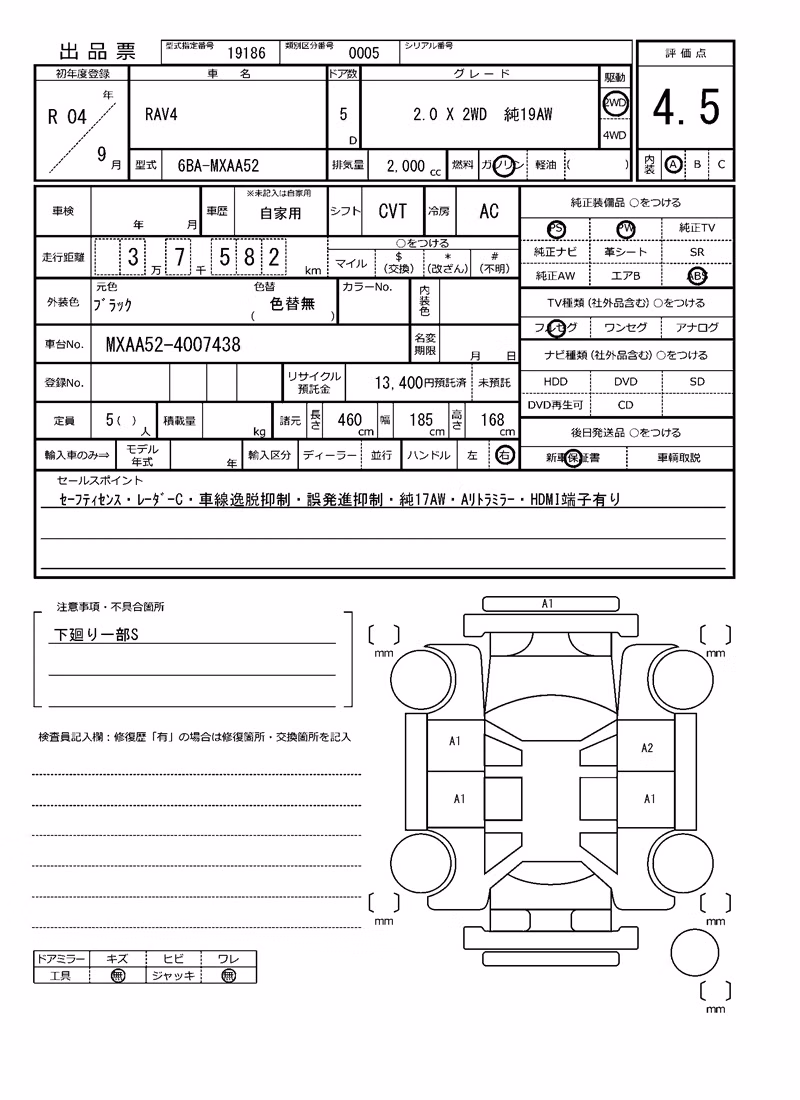 出品票
型式指定番号 19186 類別区分番号 0005 シリアル番号
評価点
4.5
内装 A B C
初年度登録 車名 ドア数 グレード 駆動
R 04 年 9 月
RAV4
5 D
2.0 X 2WD 純19AW
2WD
4WD
型式 6BA-MXAA52 排気量 2,000 cc 燃料 ガソリン 軽油 ( )
車検 年 月 車歴 ※未記入は自家用 自家用 シフト CVT 冷房 AC
走行距離 3万7千582 km
○をつける
マイル $(交換) *(改ざん) #(不明)
外装色 元色 ブラック 色替 ( 色替無 ) カラーNo. 内装色
車台No. MXAA52-4007438 名変期限 月 日
登録No. リサイクル預託金 13,400円預託済 未預託
定員 5( )人 積載量 kg 諸元 長さ 460cm 幅 185cm 高さ 168cm
輸入車のみ⇒ モデル年式 年 輸入区分 ディーラー・並行 ハンドル 左 右
純正装備品 ○をつける
PS PW 純正TV
純正ナビ 革シート SR
純正AW エアB ABS
TV種類(社外品含む)○をつける
フルセグ ワンセグ アナログ
ナビ種類(社外品含む)○をつける
HDD DVD SD
DVD再生可 CD
後日発送品 ○をつける
新車保証書 車輌取説
セールスポイント
ｾｰﾌﾃｨｾﾝｽ・ﾚｰﾀﾞｰC・車線逸脱抑制・誤発進抑制・純17AW・Aﾘﾄﾗﾐﾗｰ・HDMI端子有り
注意事項・不具合箇所
下廻り一部S
検査員記入欄：修復歴「有」の場合は修復箇所・交換箇所を記入
A1
mm mm
A1 A2
A1 A1
mm mm
mm
ドアミラー キズ ヒビ ワレ
工具 無 ジャッキ 無